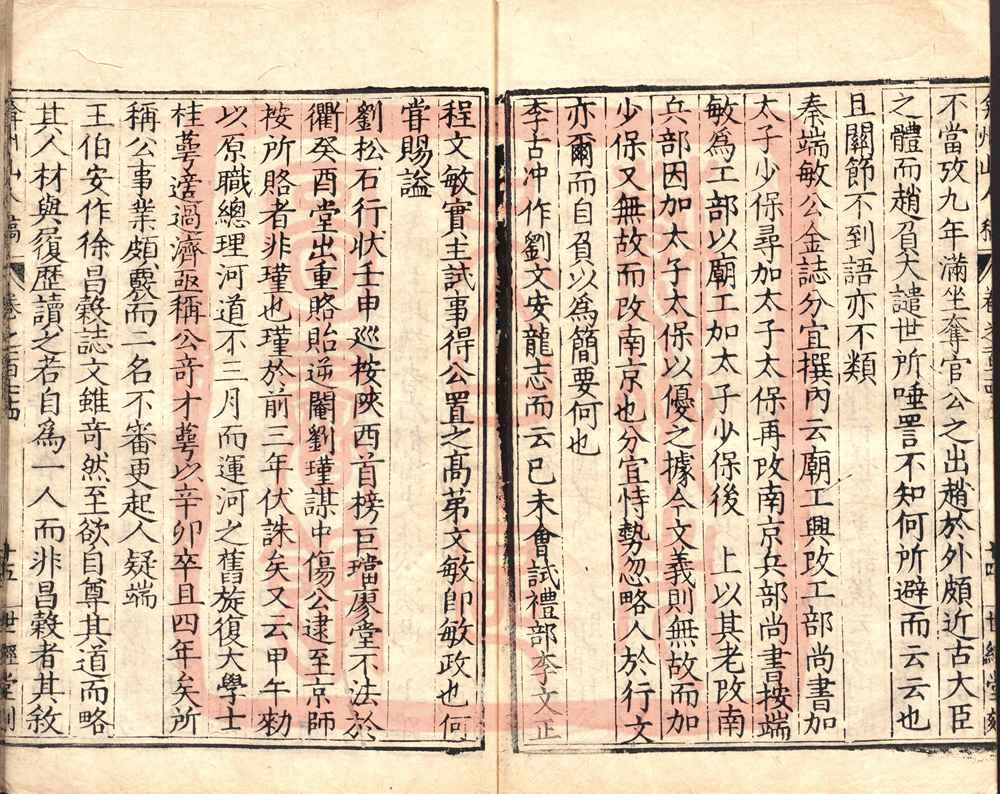 弇州山人稿 卷之一百十四 十四 世經堂刻
不當攷九年滿坐奪官公之出趙於外頗近古大臣
之體而趙負大譴世所唾詈不知何所避而云云也
且關節不到語亦不類
秦端敏公金誌分宜撰內云廟工興攺工部尚書加
太子少保尋加太子太保再攺南京兵部尚書按端
敏為工部以廟工加太子少保後 上以其老攺南
兵部因加太子太保以優之據今文義則無故而加
少保又無故而改南京也分宜恃勢忽略人於行文
亦爾而自負以為簡要何也
李古冲作劉文安龍志而云已未會試禮部李文正
程文敏實主試事得公置之髙第文敏卽敏政也何
甞賜謚
劉松石行狀壬申廵按陜西首榜巨璫廖堂不法於
衢癸酉堂出重賂貽逆閹劉瑾謀中傷公逮至京師
按所賂者非瑾也瑾於前三年伏誅矣又云甲午勑
以原職總理河道不三月而運河之舊旋復大學士
桂萼逵過濟亟稱公竒才萼以辛卯卒且四年矣所
稱公事業頗覈而二名不審更起人疑端
王伯安作徐昌榖誌文雖竒然至欲自尊其道而略
其人材與履歷讀之若自為一人而非昌榖者其敘
弇州山人稿 卷之一百十四 十五 世經堂刻